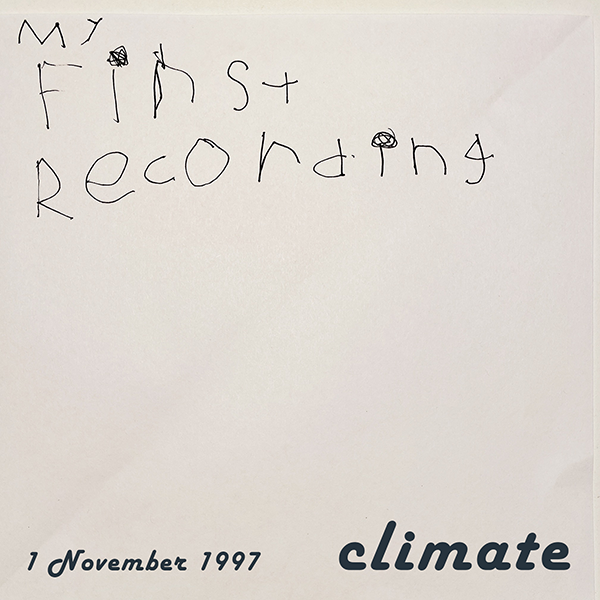 My
First
Recording
1 November 1997 climate